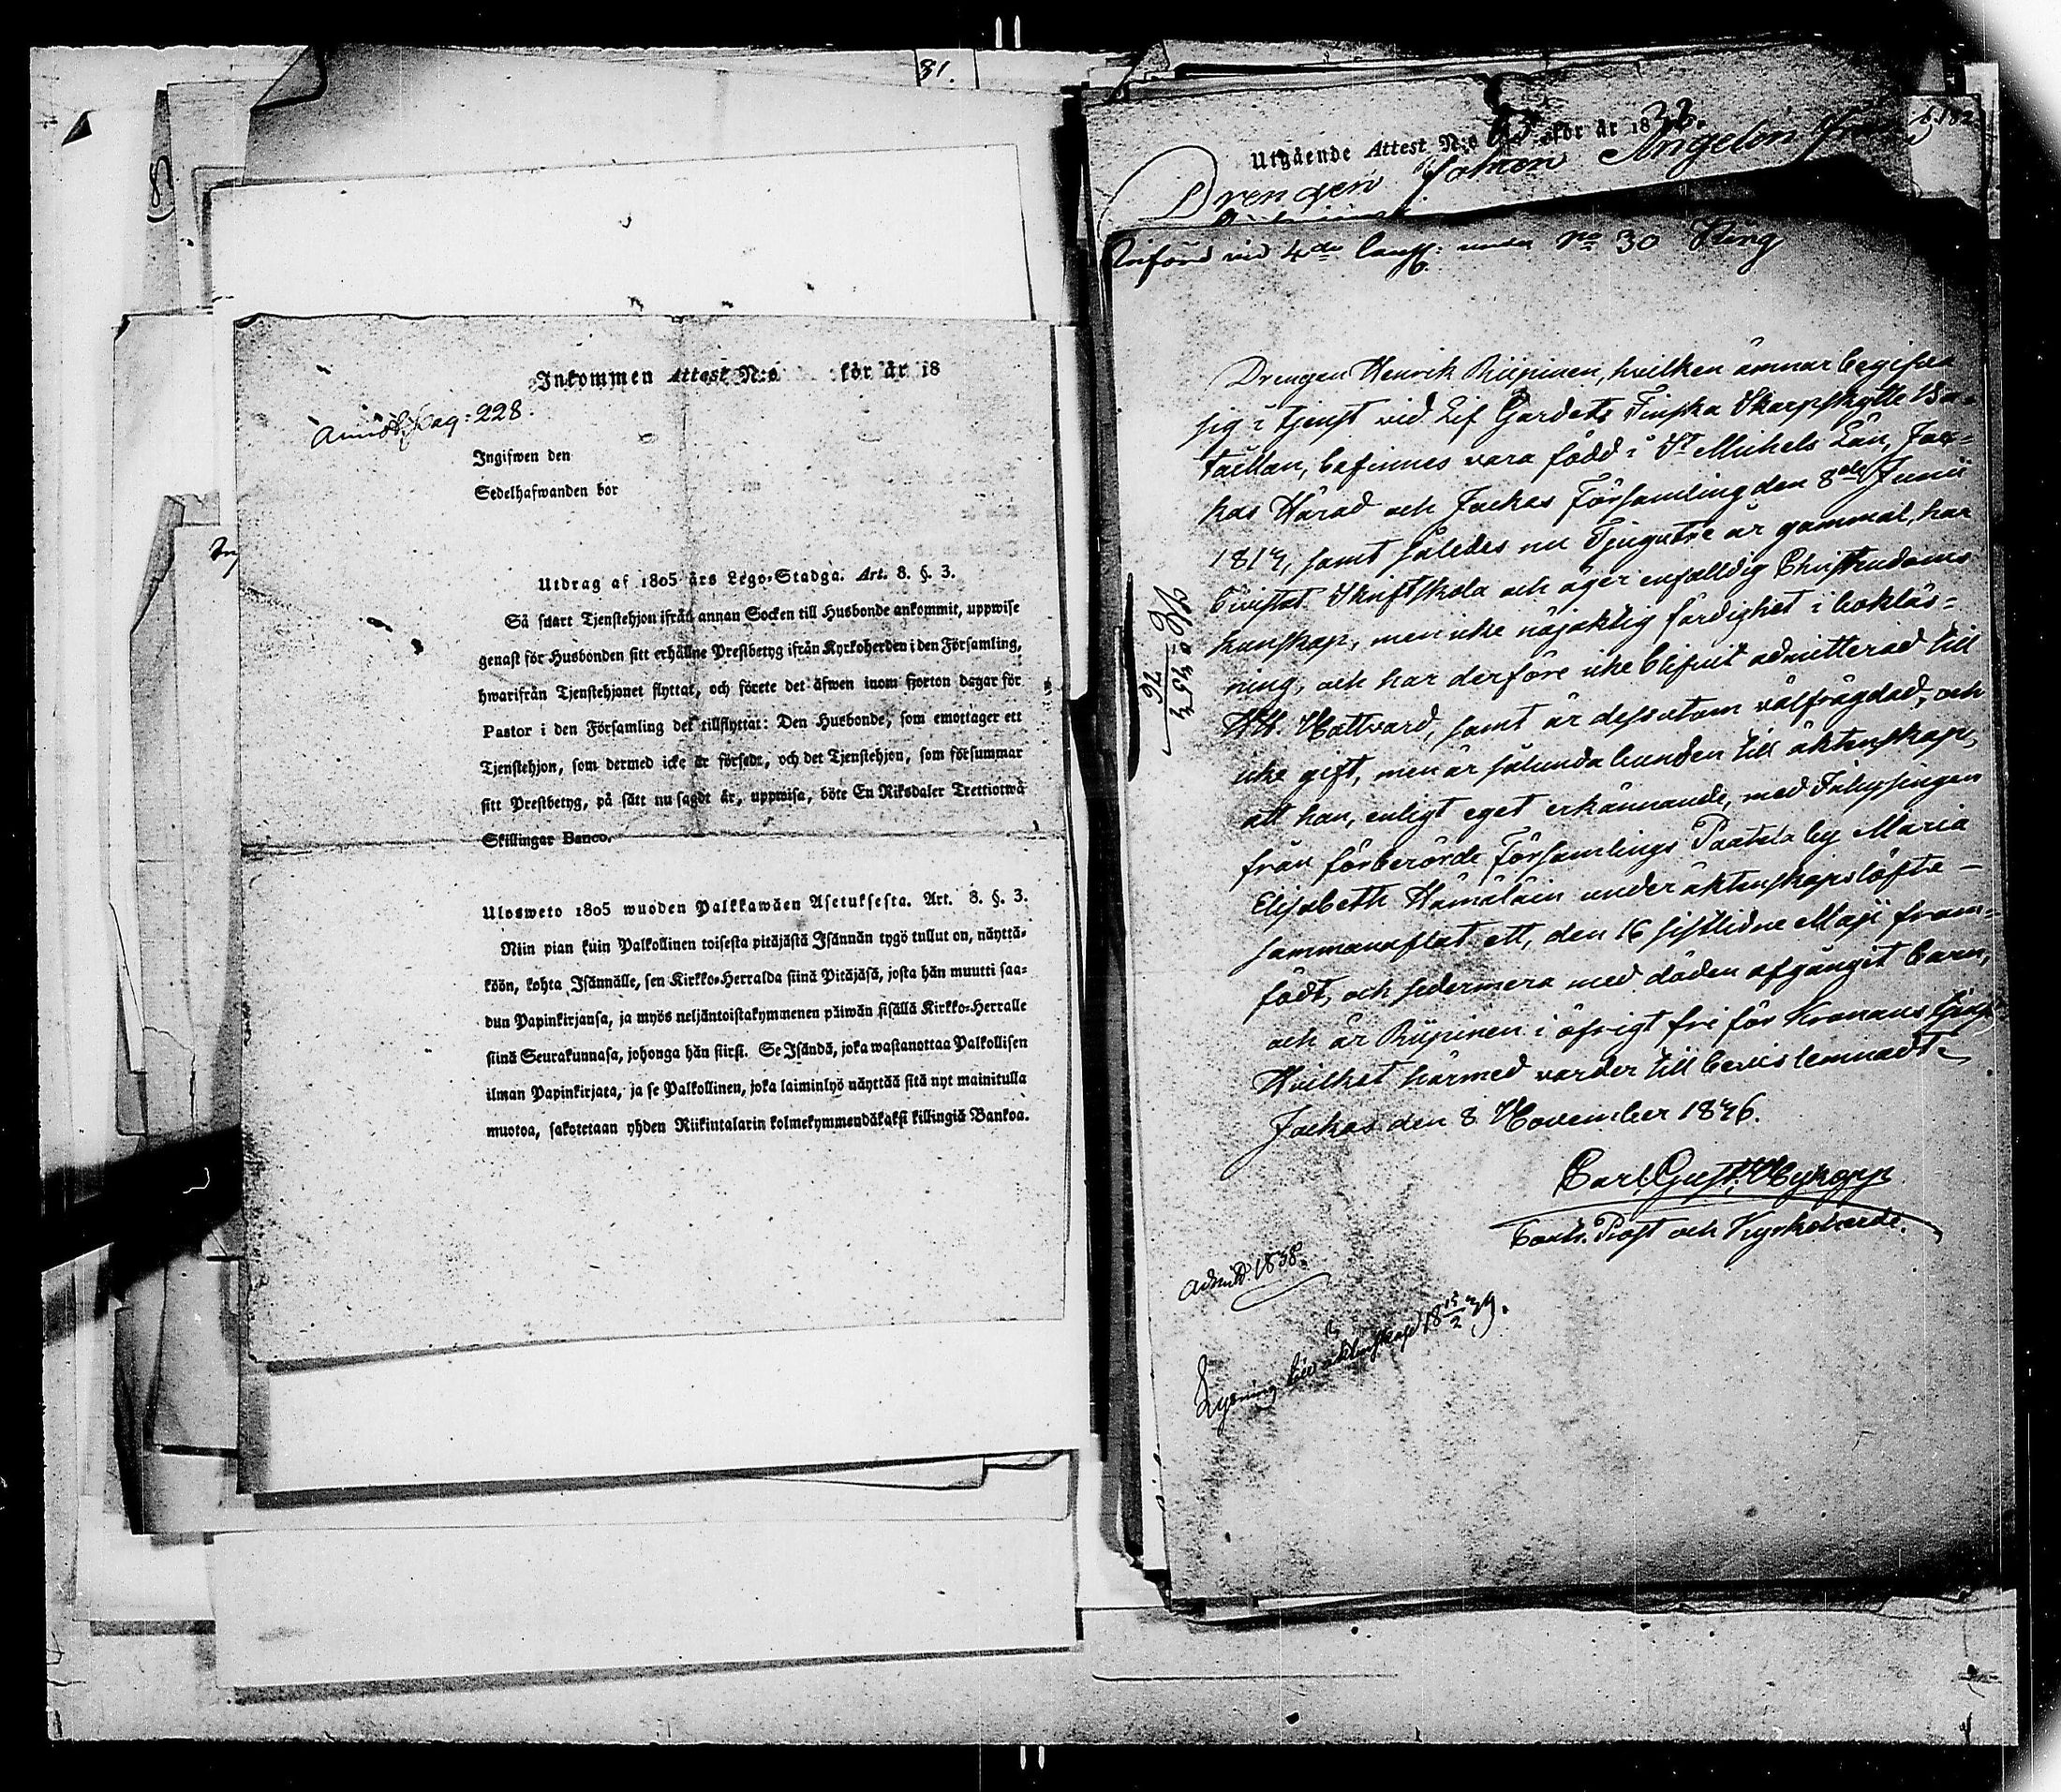 81.
Inkommen Attest N:o för år 18
Annot. pag: 228.
Ingifwen den
Sedelhafwanden bor
Utdrag af 1805 års Lego-Stadga. Art. 8. §. 3.
Så snart Tjenstehjon ifrån annan Socken till Husbonde ankommit, uppwise
genast för Husbonden sitt erhållne Prestbetyg ifrån Kyrkoherden i den Församling,
hwarifrån Tjenstehjonet flyttat, och förete det äfwen inom fjorton dagar för
Pastor i den Församling det tillflyttat: Den Husbonde, som emottager ett
Tjenstehjon, som dermed icke är försedt, och det Tjenstehjon, som försummar
sitt Prestbetyg, på sätt nu sagdt är, uppwisa, böte En Riksdaler Trettiotwå
Skillingar Banco.
Ulosweto 1805 wuoden Palkkawäen Asetuksesta. Art. 8. §. 3.
Niin pian kuin Palkollinen toisesta pitäjästä Isännän tygö tullut on, näyttä-
köön, kohta Isännälle, sen Kirkko-Herralda siinä Pitäjäsä, josta hän muutti saa-
dun Papinkirjansa, ja myös neljäntoistakymmenen päiwän sisällä Kirkko-Herralle
siinä Seurakunnasa, johonga hän siirsi. Se Isändä, joka wastanottaa Palkollisen
ilman Papinkirjata, ja se Palkollinen, joka laiminlyö näyttää sitä nyt mainitulla
muotoa, sakotetaan yhden Riikintalarin kolmekymmendäkaksi killingiä Bankoa.
Utgående Attest N:o för år 18
Drengen Johan Angelin
Införd vid 4de Comp: under No 30 Ring
Drengen Henrik Riipinen, hvilken ämnar begifva
sig i tjenst vid Lif Gardets Finska Skarpskytte Ba-
taillon, befinnes vara född i St Michels Län, Joc-
kas Härad och Jockas Församling den 8de Junii
1814, samt således nu Tjugutre år gammal, har
bevistat Skriftskola och äger enfalldig Christendoms
kunskap, men icke nöjaktig färdighet i boklas-
ning, och har derföre icke blifvit admitterad till
HH. Nattvard, samt är dessutom välfrägdad, och
icke gift, men är sålunda bunden till äktenskap,
att han, enligt eget erkännande, med Inhysingen
från förberörde Församlings Paatela by Maria
Elisabeth Hämäläin under äktenskapslöfte
sammanaflat ett, den 16 sistlidne Maji fram-
födt, och sedermera med döden afgångit barn,
och är Riipinen i öfrigt fri för Kronans tjenst
Hvilket härmed varder till bevis lemnadt.
Jockas den 8 November 1836.
Carl Gust. Nykopp
Contr. Prost och Kyrkoherde.
Admitt. 1838.
Lysning till äktenskap 18 15/2 39.